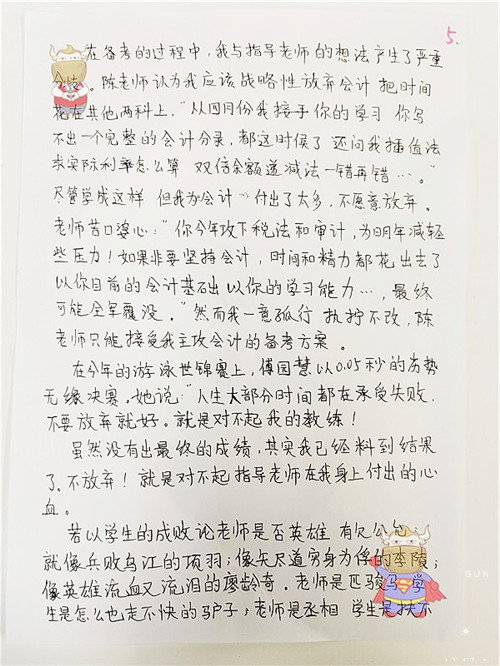 5.
在备考的过程中，我与指导老师的想法产生了严重
分歧。陈老师认为我应该战略性放弃会计 把时间
花在其他两科上，“从四月份我接手你的学习 你写
不出一个完整的会计分录，都这时候了 还问我插值法
求实际利率怎么算 双倍余额递减法一错再错…。”
尽管学成这样 但我为会计 付出了太多，不愿意放弃。
老师苦口婆心：“你今年攻下税法和审计，为明年减轻
些压力！如果非要坚持会计，时间和精力都花出去了
以你目前的会计基础 以你的学习能力…，最终
可能全军覆没。”然而我一意孤行 执拗不改，陈
老师只能接受我主攻会计的备考方案。
在今年的游泳世锦赛上，傅园慧以0.05秒的劣势
无缘决赛。她说：“人生大部分时间都在承受失败，
不要放弃就好。就是对不起我的教练！
虽然没有出最终的成绩，其实我已经料到结果
了。不放弃！就是对不起指导老师在我身上付出的心
血。
若以学生的成败论老师是否英雄 有欠公
就像兵败乌江的项羽；像矢尽道穷身为俘的李陵；
像英雄流血又流泪的廖龄奇。老师是匹骏马 学
生是怎么也走不快的驴子；老师是丞相 学生是扶不
SUN